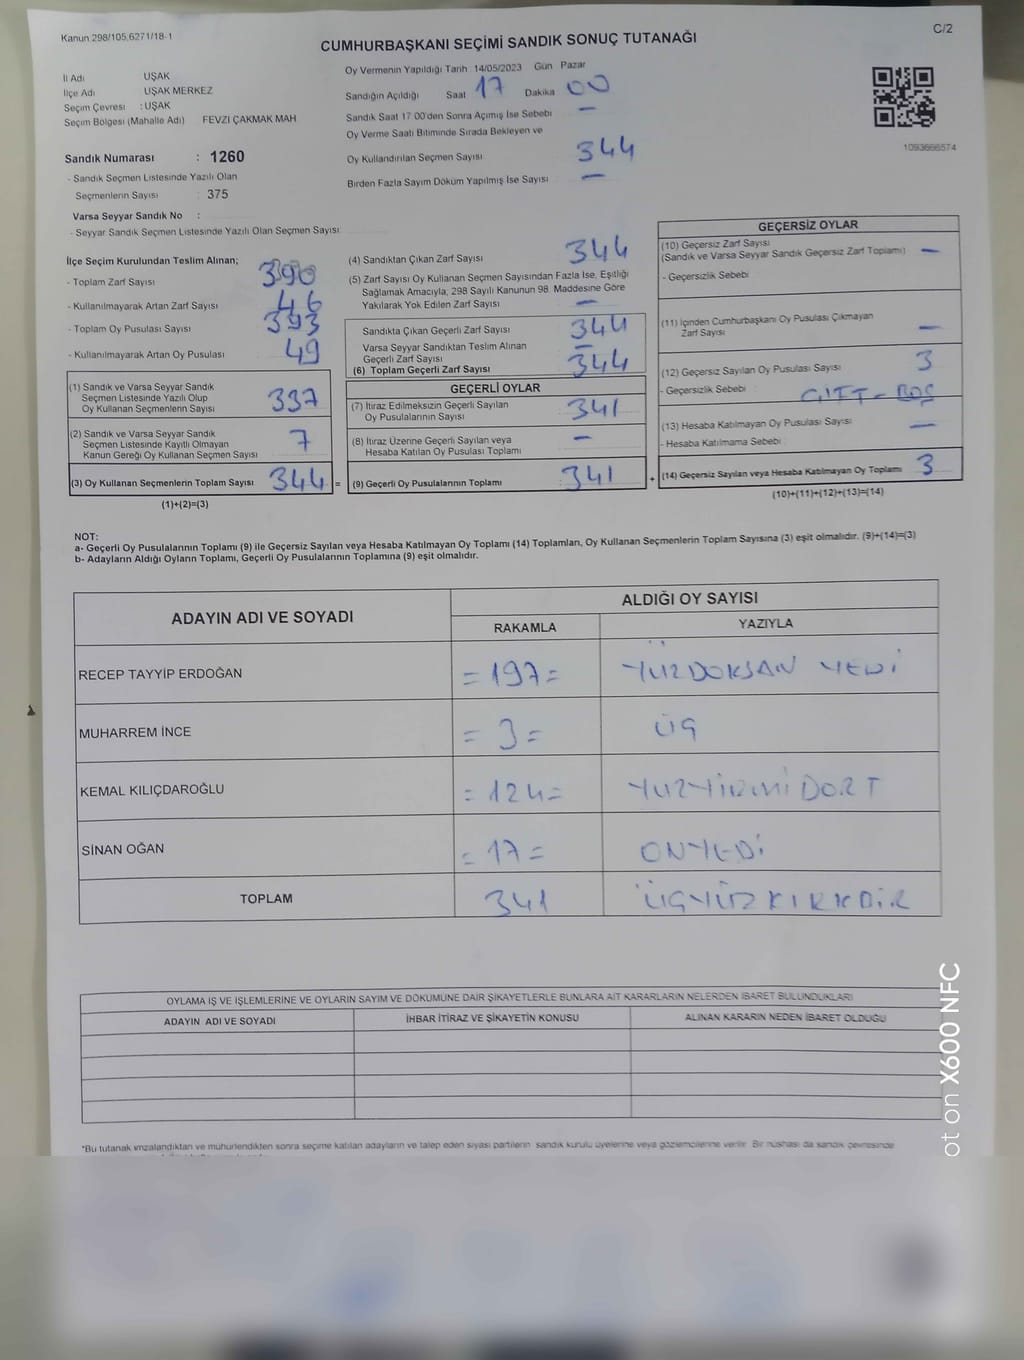 Kanun 298/105,6271/18-1
C/2
CUMHURBAŞKANI SEÇİMİ SANDIK SONUÇ TUTANAĞI
İl Adı UŞAK
İlçe Adı UŞAK MERKEZ
Seçim Çevresi : UŞAK
Seçim Bölgesi (Mahalle Adı) FEVZİ ÇAKMAK MAH
Sandık Numarası : 1260
- Sandık Seçmen Listesinde Yazılı Olan
Seçmenlerin Sayısı : 375
Varsa Seyyar Sandık No :
- Seyyar Sandık Seçmen Listesinde Yazılı Olan Seçmen Sayısı
Oy Vermenin Yapıldığı Tarih 14/05/2023 Gün Pazar
Sandığın Açıldığı Saat 17 Dakika 00
Sandık Saat 17 00'den Sonra Açımış İse Sebebi —
Oy Verme Saati Bitiminde Sırada Bekleyen ve
Oy Kullandırılan Seçmen Sayısı 344
Birden Fazla Sayım Döküm Yapılmış İse Sayısı —
1093666574
İlçe Seçim Kurulundan Teslim Alınan;
- Toplam Zarf Sayısı 390
- Kullanılmayarak Artan Zarf Sayısı 46
- Toplam Oy Pusulası Sayısı 393
- Kullanılmayarak Artan Oy Pusulası 49
(1) Sandık ve Varsa Seyyar Sandık
Seçmen Listesinde Yazılı Olup
Oy Kullanan Seçmenlerin Sayısı 337
(2) Sandık ve Varsa Seyyar Sandık
Seçmen Listesinde Kayıtlı Olmayan
Kanun Gereği Oy Kullanan Seçmen Sayısı 7
(3) Oy Kullanan Seçmenlerin Toplam Sayısı 344 =
(1)+(2)=(3)
(4) Sandıktan Çıkan Zarf Sayısı 344
(5) Zarf Sayısı Oy Kullanan Seçmen Sayısından Fazla İse, Eşitliği
Sağlamak Amacıyla, 298 Sayılı Kanunun 98. Maddesine Göre
Yakılarak Yok Edilen Zarf Sayısı —
Sandıkta Çıkan Geçerli Zarf Sayısı 344
Varsa Seyyar Sandıktan Teslim Alınan
Geçerli Zarf Sayısı —
(6) Toplam Geçerli Zarf Sayısı 344
GEÇERLİ OYLAR
(7) İtiraz Edilmeksizin Geçerli Sayılan
Oy Pusulalarının Sayısı 341
(8) İtiraz Üzerine Geçerli Sayılan veya
Hesaba Katılan Oy Pusulası Toplamı —
(9) Geçerli Oy Pusulalarının Toplamı 341 +
GEÇERSİZ OYLAR
(10) Geçersiz Zarf Sayısı
(Sandık ve Varsa Seyyar Sandık Geçersiz Zarf Toplamı) —
- Geçersizlik Sebebi
(11) İçinden Cumhurbaşkanı Oy Pusulası Çıkmayan
Zarf Sayısı —
(12) Geçersiz Sayılan Oy Pusulası Sayısı 3
- Geçersizlik Sebebi ÇİFT - BOŞ
(13) Hesaba Katılmayan Oy Pusulası Sayısı —
- Hesaba Katılmama Sebebi
(14) Geçersiz Sayılan veya Hesaba Katılmayan Oy Toplamı 3
(10)+(11)+(12)+(13)=(14)
NOT:
a- Geçerli Oy Pusulalarının Toplamı (9) ile Geçersiz Sayılan veya Hesaba Katılmayan Oy Toplamı (14) Toplamları, Oy Kullanan Seçmenlerin Toplam Sayısına (3) eşit olmalıdır. (9)+(14)=(3)
b- Adayların Aldığı Oyların Toplamı, Geçerli Oy Pusulalarının Toplamına (9) eşit olmalıdır.
ADAYIN ADI VE SOYADI ALDIĞI OY SAYISI
RAKAMLA YAZIYLA
RECEP TAYYİP ERDOĞAN =197= YÜZDOKSAN YEDİ
MUHARREM İNCE =3= ÜÇ
KEMAL KILIÇDAROĞLU =124= YUZYİRMİ DORT
SİNAN OĞAN =17= ONYEDİ
TOPLAM 341 ÜÇYÜZKIRKBİR
OYLAMA İŞ VE İŞLEMLERİNE VE OYLARIN SAYIM VE DÖKÜMÜNE DAİR ŞİKAYETLERLE BUNLARA AİT KARARLARIN NELERDEN İBARET BULUNDUKLARI
ADAYIN ADI VE SOYADI İHBAR İTİRAZ VE ŞİKAYETİN KONUSU ALINAN KARARIN NEDEN İBARET OLDUĞU
*Bu tutanak imzalandıktan ve mühürlendikten sonra seçime katılan adayların ve talep eden siyasi partilerin sandık kurulu üyelerine veya gözlemcilerine verilir. Bir nüshası da sandık çevresinde
ot on X600 NFC